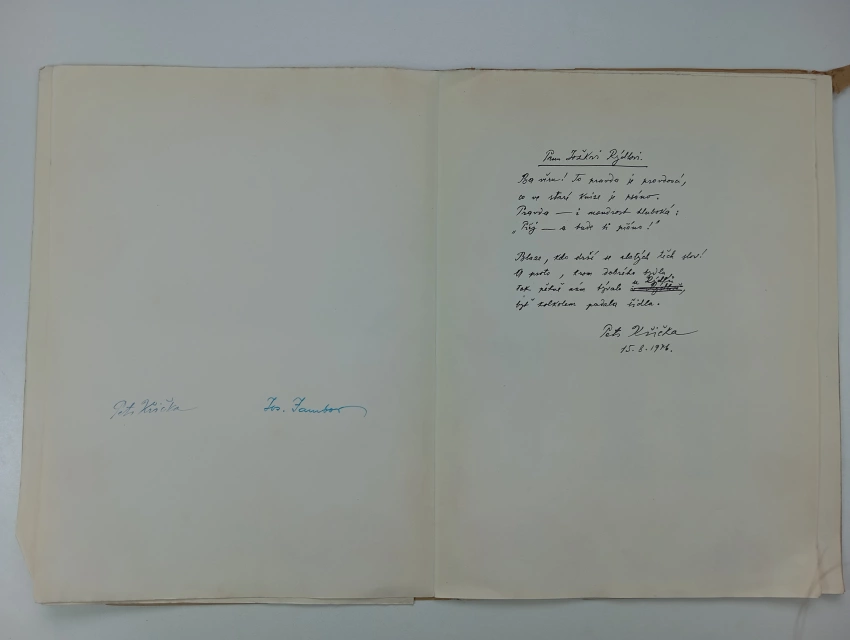 Petr Křička
Jos. Jambor
Panu Jožkovi Rýdlovi.
Ba věru! To pravda je pravdoucí,
co ve staré knize je psáno.
Pravda — i moudrost hluboká:
„Pij — a bude ti přáno!"
Blaze, kdo drží se zlatých těch slov!
A proto, krom dobrého
tak pěkně nám bývalo u Rýdlů
byť kolkolem padala šídla.
Petr Křička
15.8.1946.